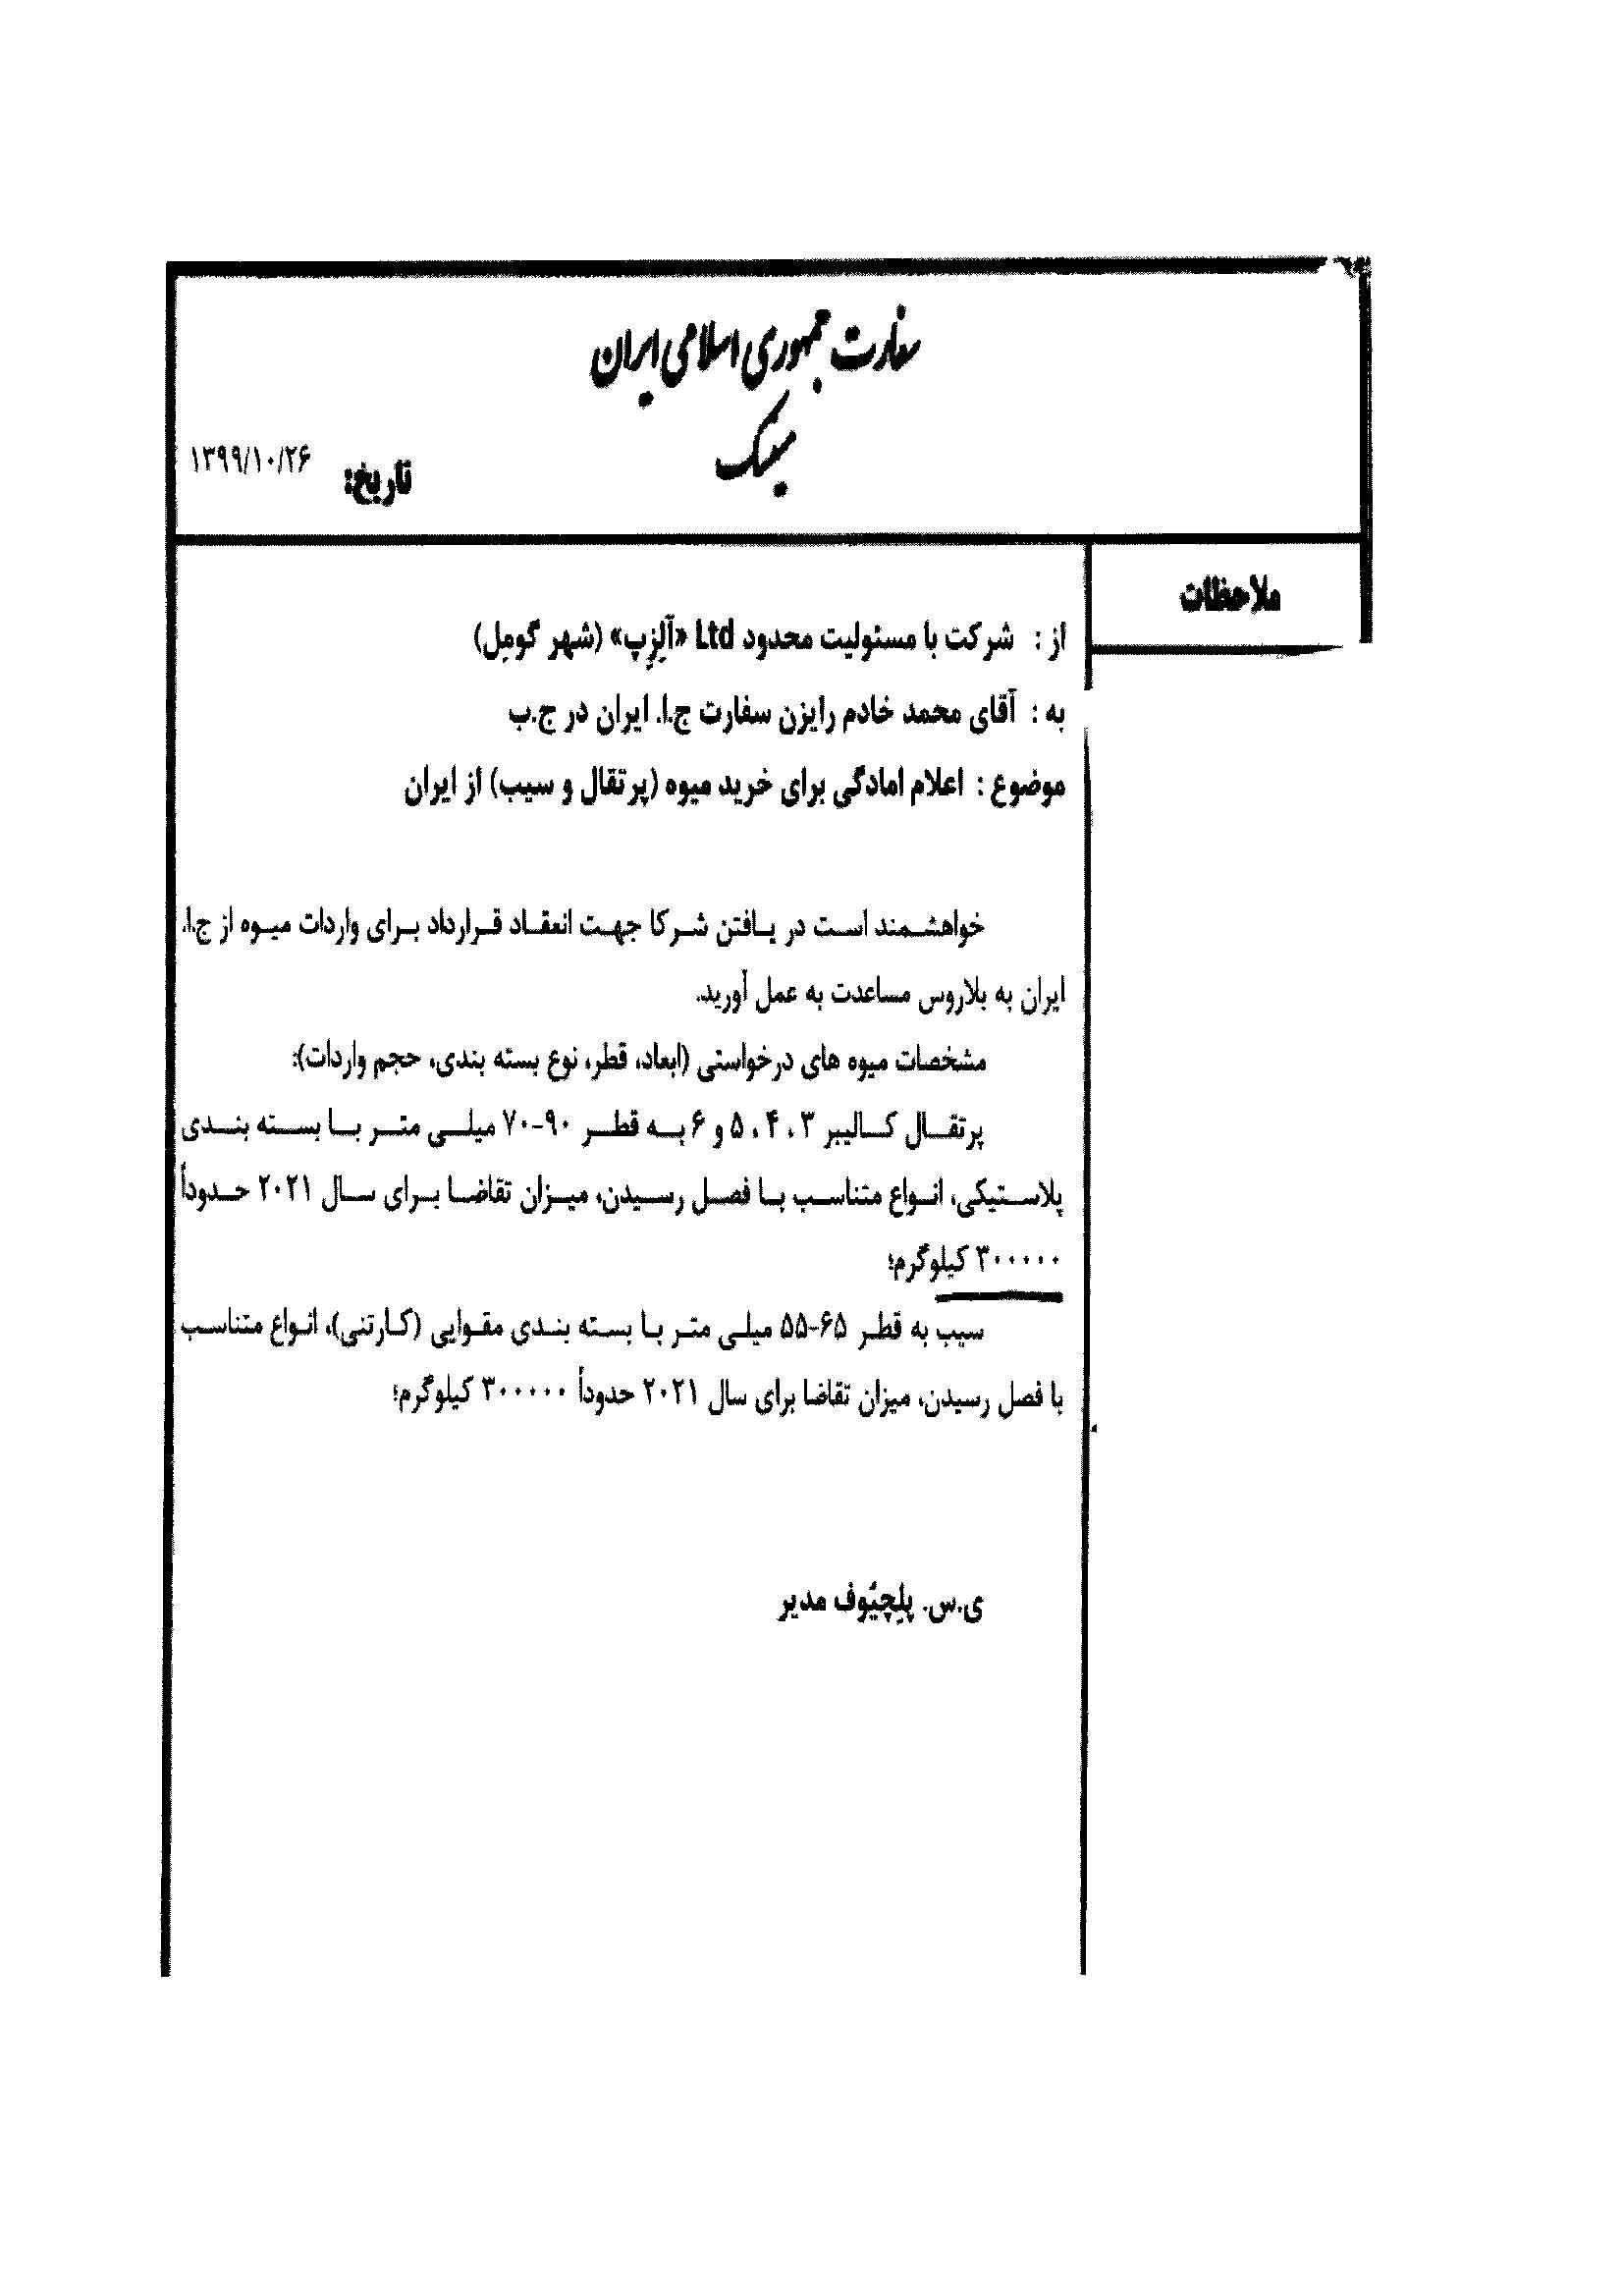 سفارت جمهوری اسلامی ایران
مینسک
تاریخ: ۱۳۹۹/۱۰/۲۶
ملاحظات
از : شرکت با مسئولیت محدود Ltd «آلِزِپ» (شهر گومِل)
به : آقای محمد خادم رایزن سفارت ج.ا. ایران در ج.ب
موضوع : اعلام امادگی برای خرید میوه (پرتقال و سیب) از ایران
خواهشمند است در یافتن شرکا جهت انعقاد قرارداد برای واردات میوه از ج.ا.
ایران به بلاروس مساعدت به عمل آورید.
مشخصات میوه های درخواستی (ابعاد، قطر، نوع بسته بندی، حجم واردات):
پرتقال کالیبر ۳ ، ۴ ، ۵ و ۶ به قطر ۹۰-۷۰ میلی متر با بسته بندی
پلاستیکی، انواع متناسب با فصل رسیدن، میزان تقاضا برای سال ۲۰۲۱ حدوداً
۳۰۰۰۰۰ کیلوگرم؛
سیب به قطر ۶۵-۵۵ میلی متر با بسته بندی مقوایی (کارتنی)، انواع متناسب
با فصل رسیدن، میزان تقاضا برای سال ۲۰۲۱ حدوداً ۳۰۰۰۰۰ کیلوگرم؛
ی.س. پلِچیُوف مدیر